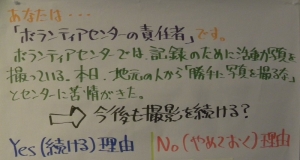 あなたは・・・
「ボランティアセンターの責任者」です。
ボランティアセンターでは、記録のために活動写真を
撮っている。本日、地元の人から「勝手に写真を撮るな」
とセンターに苦情がきた。
⇨ 今後も撮影を続ける？
Yes(続ける)理由 No(やめておく)理由